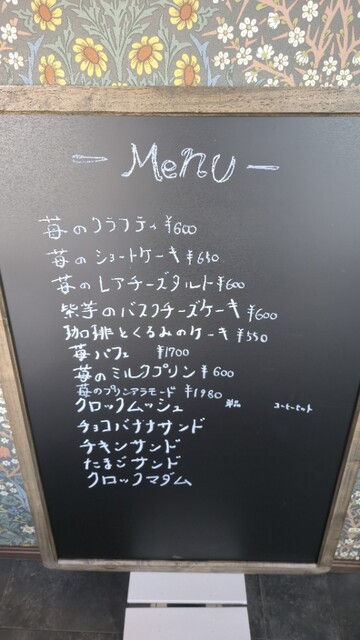 Menu
苺のクラフティ ¥600
苺のショートケーキ ¥650
苺のレアチーズタルト ¥600
紫芋のバスクチーズケーキ ¥600
珈琲とくるみのケーキ ¥550
苺パフェ ¥1700
苺のミルクプリン ¥600
苺のプリンアラモード ¥1980
クロックムッシュ 単品 コーヒーセット
チョコバナナサンド
チキンサンド
たまごサンド
クロックマダム